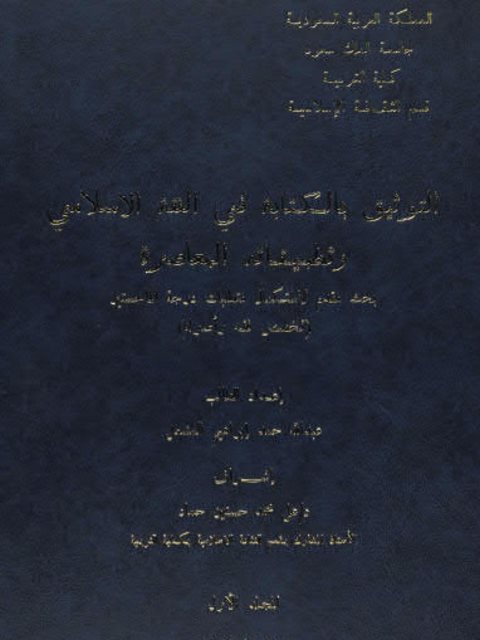 المملكة العربية السعودية
جامعة الملك سعود
كلية التربية
قسم الثقافة الإسلامية
التوثيق بالكتابة في الفقه الاسلامي
وتطبيقاته المعاصرة
بحث مقدم لاستكمال متطلبات درجة الماجستير
إعداد الطالب
عبدالله حمد إبراهيم
إشراف
محمد حسنين
الأستاذ المشارك بقسم الثقافة الاسلامية بكلية التربية
المجلد الأول